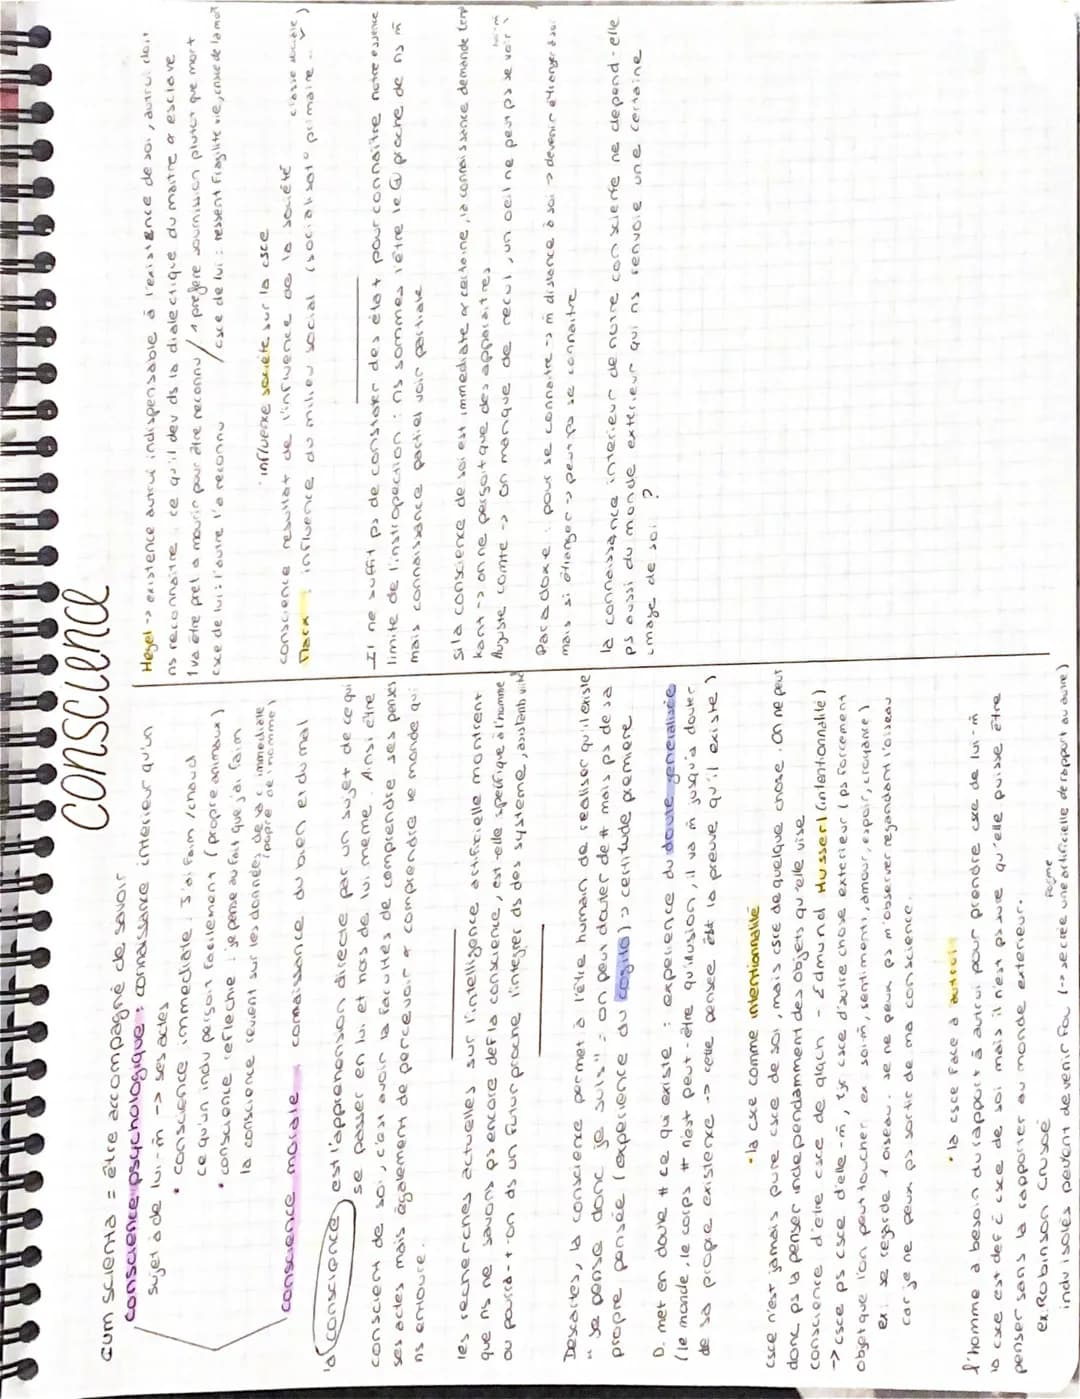 conscience
cum scientia = être accompagné de savoir
conscience psychologique : connaissance interieur qu'un
sujet à de lui-m̄ -> ses actes
• conscience immediate : J'ai faim / chaud
ce qu'un indiv perçoit facilement (propre animaux)
• conscience reflechie : je pense au fait que j'ai faim
la conscience revient sur les données de la c immediate
(propre de l'homme)
conscience morale : connaissance du bien et du mal
la conscience est l'apprehension directe par un sujet de ce qui
se passe en lui et hors de lui meme. Ainsi être
conscient de soi, c'est avoir la facultés de comprendre ses pensés
ses actes mais également de percevoir et comprendre le monde qui
ns entoure.
les recherches actuelles sur l'intelligence artificielle montrent
que ns ne savons ps encore def la conscience, est-elle spécifique à l'homme
ou pourra-t-on ds un futur proche l'integrer ds des systeme
Descartes, la conscience permet à l'être humain de realiser qu'il existe
"je pense donc je suis" : on peut douter de tt mais ps de sa
propre pensée (experience du cogito) -> certitude première
D. met en doute tt ce qui existe : experience du doute generalisée
(le monde, le corps tt n'est peut-être qu'illusion, il va m̄ jusqu'a douter
de sa propre existence -> cette pensée est la preuve qu'il existe)
• la csce comme intentionnalité
csce n'est jamais pure csce de soi, mais csce de quelque chose. on ne peut
donc ps la penser independamment des objets qu'elle vise
conscience d'etre csce de qlqch - Edmund Husserl (intentionnalité)
-> csce ps csce d'elle-m̄, tjr csce d'autre chose exterieur (ps forcement
objet que l'on peut toucher, ex : soi-m̄, sentiments, amour, espoir, croyance)
ex : je regarde 1 oiseau. je ne peux ps m'observer regardant l'oiseau
car je ne peux ps sortir de ma conscience.
• la csce face à autrui
l'homme a besoin du rapport à autrui pour prendre csce de lui-m̄
la csce est def c̄ csce de soi mais il n'est ps sure qu'elle puisse être
penser sans la rapporter au monde exterieur.
ex : Robinson Crusoé
indiv isolés peuvent devenir fou (-> se crée une artificielle de rapport au autre)
forme
Hegel -> existence autrui indispensable à l'existence de soi, autrui doit
ns reconnaitre, ce qu'il dev ds la dialectique du maitre et esclave
1 va être pret a mourir pour être reconnu / 1 prefere soumission plutot que mort
csce de lui : l'autre l'a reconnu / csce de lui : ressent fragilité vie, crainte de la mort
• influence société sur la csce
conscience resultat de l'influence de la société
Marx : influence du milieu social (socialisat° primaire...)
classe sociale
Il ne suffit ps de constater des état pour connaître notre essence
limite de l'instropection : ns sommes l'être le + proche de ns m̄
mais connaissance partiel voir partiale
Si la conscience de soi est immediate et certaine, la connaissance demande temps
Kant -> on ne perçoit que des apparaitres
Auguste comte -> on manque de recul, un oeil ne peut ps se voir lui-m̄
Paradoxe : pour se connaitre -> m̄ distance à soi -> devenir étranger à soi
mais si étranger -> peut ps se connaitre
la connaissance interieur de notre conscience ne depend-elle
ps aussi du monde exterieur qui ns renvoie une certaine
image de soi ?